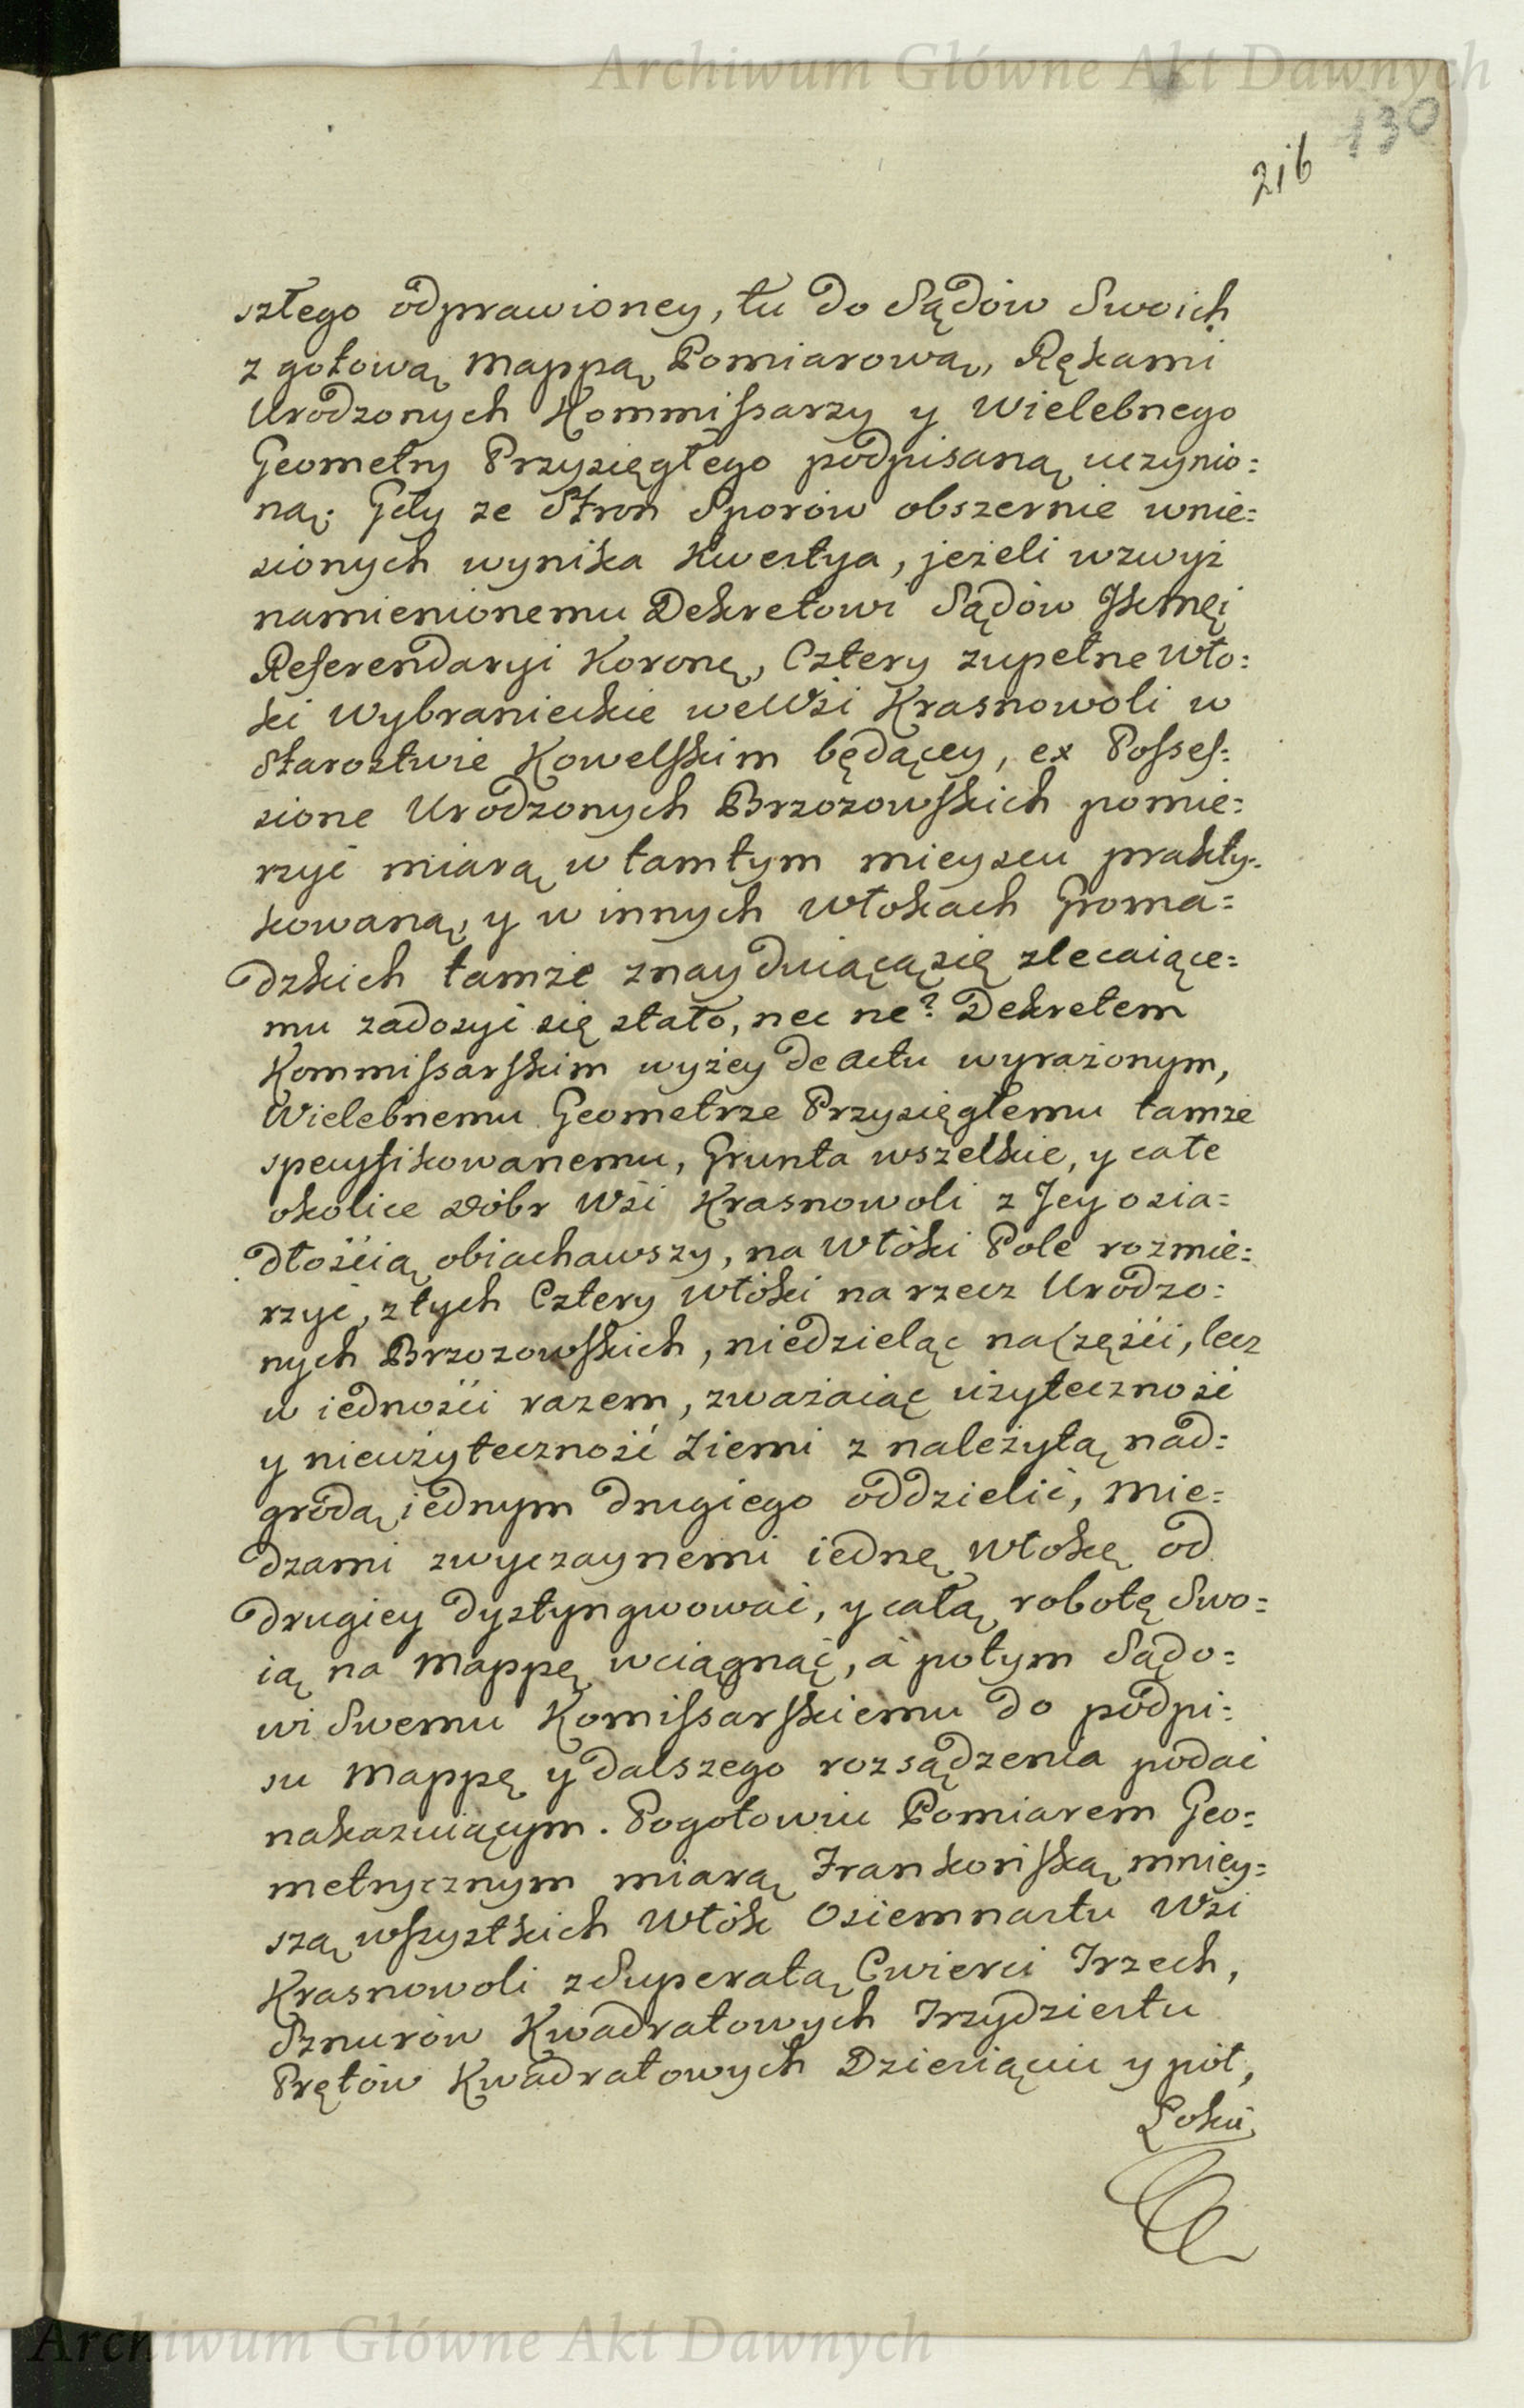 Archiwum Główne Akt Dawnych
130
216
szłego odprawioney, tu do Sądów Swoich
z gotową Mappą Pomiarową, Rękami
Urodzonych Kommissarzy y Wielebnego
Geometry Przysięgłego podpisaną uczynio:
ną. Gdy ze Stron Sporów obszernie wnie:
sionych wynika Kwestya, jeżeli wzwyż
namienionemu Dekretowi Sądów
Referendaryi Koronę, Cztery zupełne Wło:
ki Wybranieckie we Wsi Krasnowoli w
Starostwie Kowelskim będącey, ex Posses:
sione Urodzonych Brzozowskich pomie:
rzyć miarą w tamtym mieyscu prakty:
kowaną, y w innych Włokach Groma:
dzkich tamże znayduiącą się zlecaiące:
mu zadosyć się stało, nec ne? Dekretem
Kommissarskim wyżey de actu wyrażonym,
Wielebnemu Geometrze Przysięgłemu tamże
specyfikowanemu, Grunta wszelkie, y całe
okolice Dóbr Wsi Krasnowoli z Jey osia:
dłością obiachawszy, na Włóki Pole rozmie:
rzyć, z tych Cztery Włóki na rzecz Urodzo:
nych Brzozowskich, niedzieląc na Części, lecz
w iedności razem, zważaiąc użyteczność
y nieużyteczność Ziemi z należytą nad:
grodą iednym drugiego oddzielić, Mie:
dzami zwyczaynemi iednę Włokę od
drugiey dystyngwować, y całą robotę Swo:
ią na Mappę wciągnąć, a potym Sądo:
wi Swemu Komissarskiemu do podpi:
su Mappę y dalszego rozsądzenia podać
nakazuiącym. Pogotowiu Pomiarem Geo:
metrycznym miarą Frankońską mniey:
szą wszystkich Włók Osiemnastu Wsi
Krasnowoli z Superatą Cwierci Trzech,
Sznurów Kwadratowych Trzydziestu
Prętów Kwadratowych Dziesiąciu y pół,
Archiwum Główne Akt Dawnych